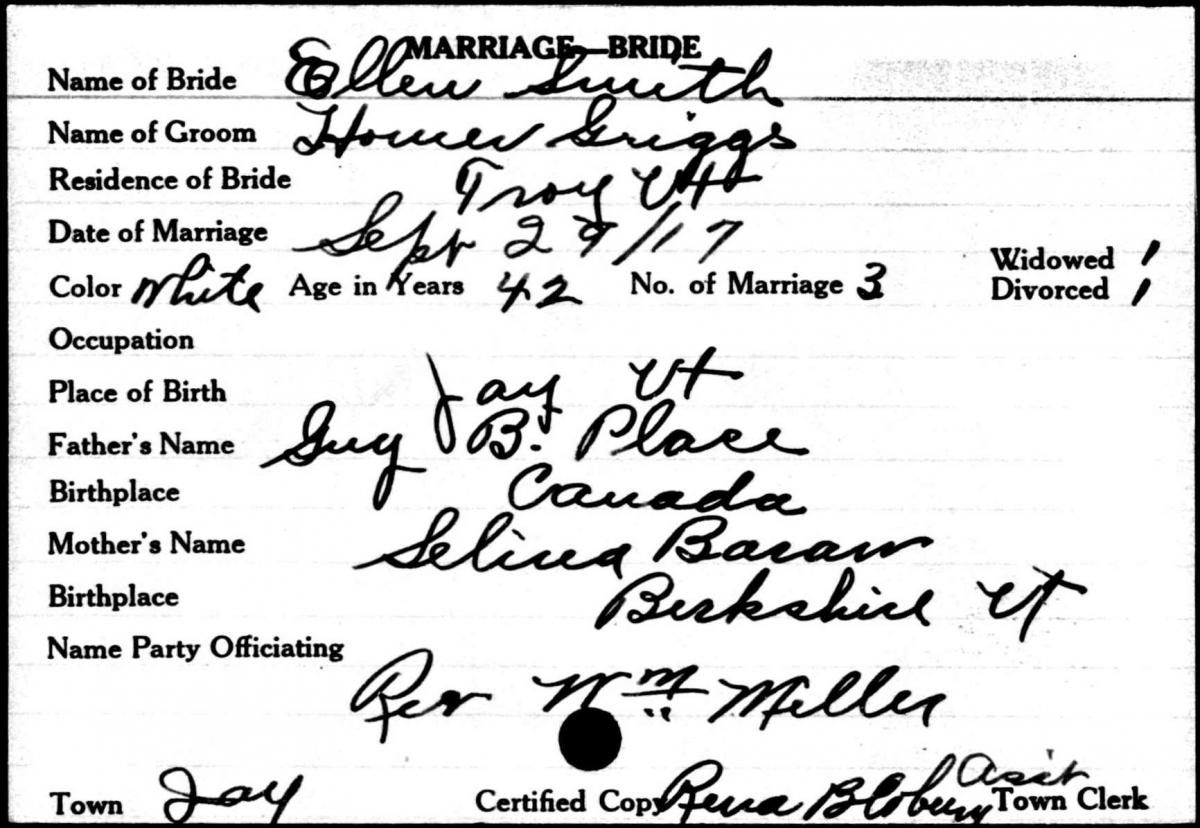 MARRIAGE—BRIDE
Name of Bride Ellen Smith
Name of Groom Homer Griggs
Residence of Bride Troy Vt
Date of Marriage Sept 29/17
Widowed 1
Color White Age in Years 42 No. of Marriage 3 Divorced 1
Occupation
Place of Birth Jay Vt
Father's Name Guy B. Place
Birthplace Canada
Mother's Name Selina Baraw
Birthplace Berkshire Vt
Name Party Officiating
Rev Wm Miller
Town Jay Certified Copy Rena B Asst Town Clerk